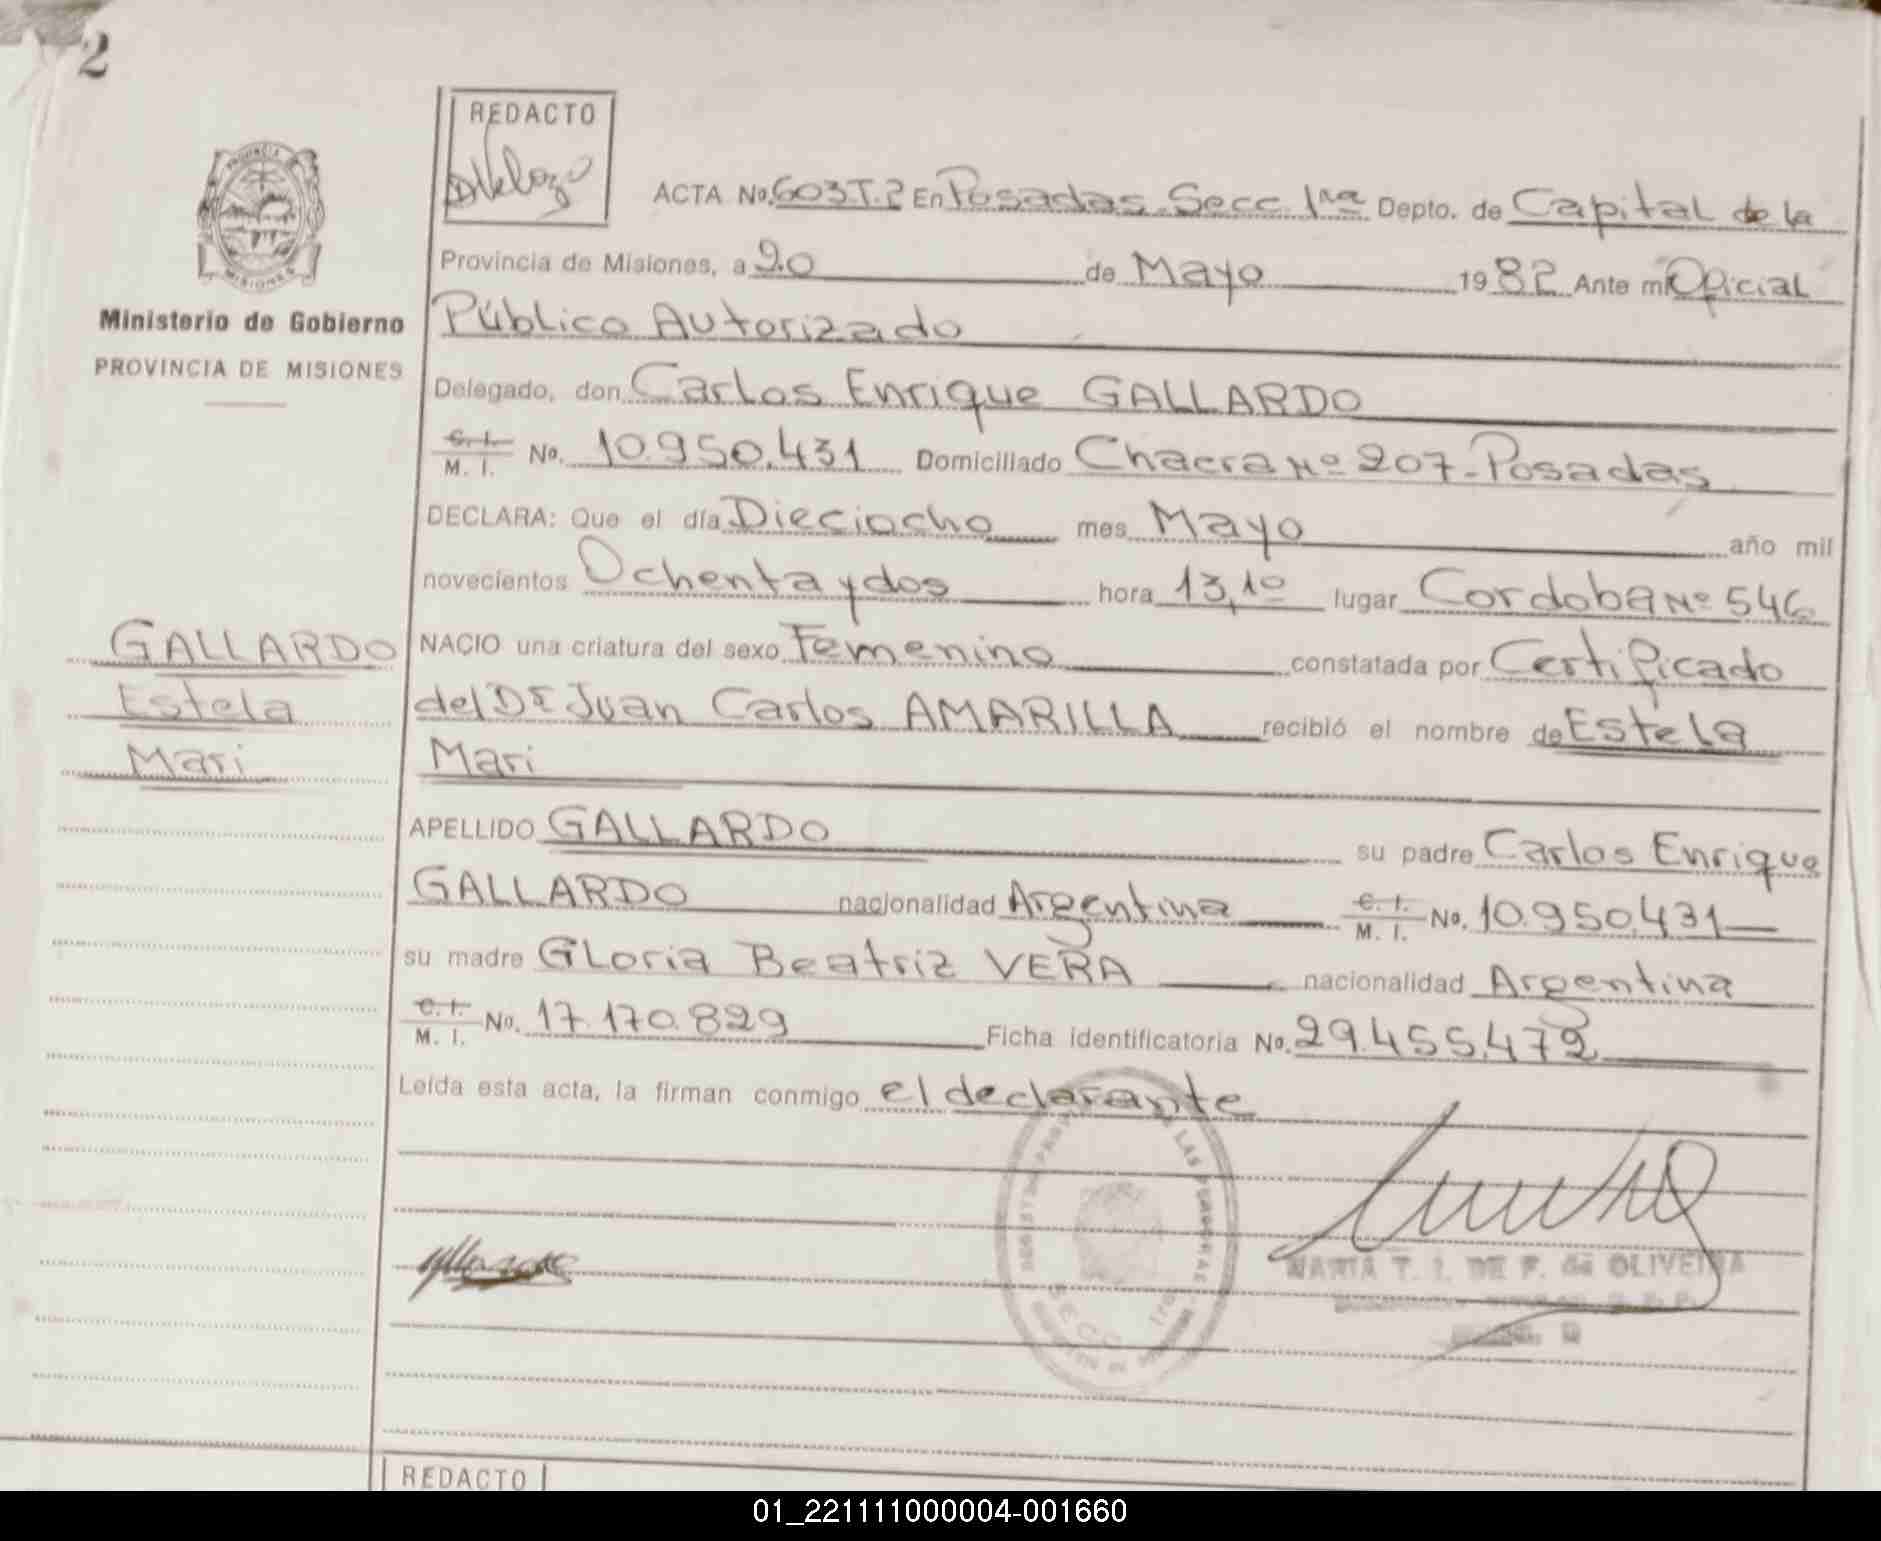 2
REDACTO
PROVINCIA
MISIONES
Ministerio de Gobierno
PROVINCIA DE MISIONES
ACTA No. 603 T.2 En Posadas. Secc 1ra Depto. de Capital de la
Provincia de Misiones, a 20 de Mayo 1982 Ante mi Oficial
Público Autorizado
Delegado, don Carlos Enrique GALLARDO
C. I. M. I. No. 10.950.431 Domiciliado Chacra Nº 207-Posadas
DECLARA: Que el día Dieciocho mes Mayo año mil
novecientos Ochenta y dos hora 13,10 lugar Cordoba Nº 546
GALLARDO
Estela
Mari
NACIO una criatura del sexo Femenino constatada por Certificado
del Dr Juan Carlos AMARILLA recibió el nombre de Estela
Mari
APELLIDO GALLARDO su padre Carlos Enrique
GALLARDO nacionalidad Argentina C. I. M. I. No. 10.950.431
su madre Gloria Beatriz VERA nacionalidad Argentina
C. I. M. I. No. 17.170.829 Ficha identificatoria No. 29.455.472
Leída esta acta, la firman conmigo el declarante
DE LAS PERSONAS
SECC
MARIA T. I. DE F. de OLIVEIRA
REDACTO
01_221111000004-001660